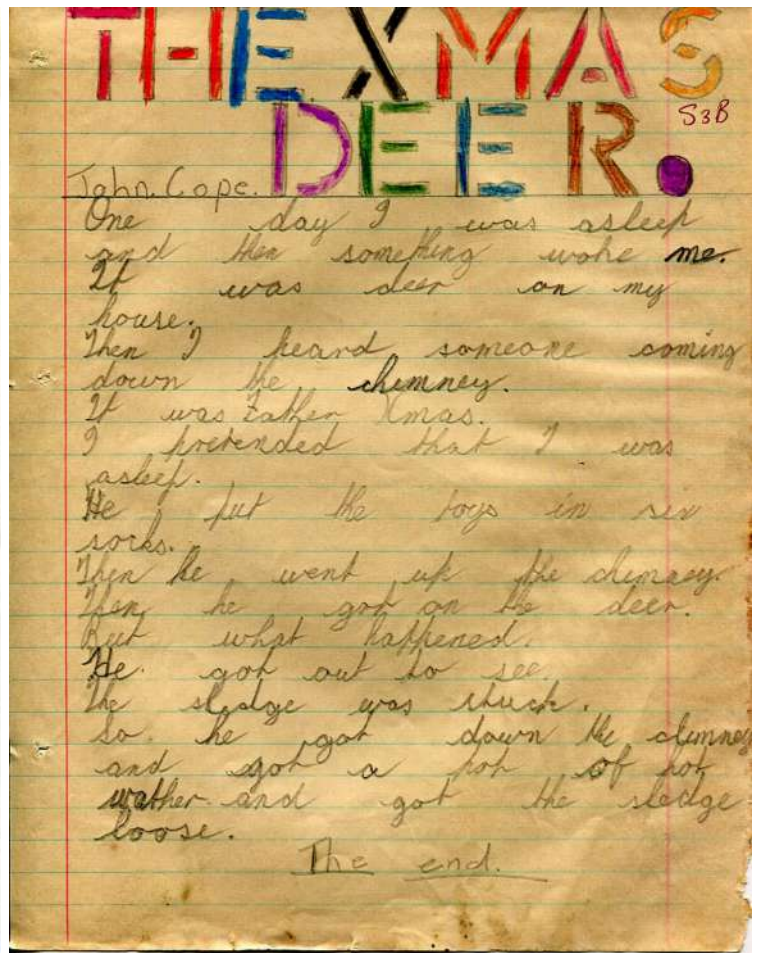 THE XMAS
DEER.
S3B
John. Cope.
One day I was asleep
and then something woke me.
It was deer on my
house.
Then I heard someone coming
down the chimney.
It was Father Xmas.
I pretended that I was
asleep.
He put the toys in six
socks.
Then he went up the chimney.
Then he got on the deer.
But what happened.
He got out to see.
The sledge was stuck.
So he got down the chimney
and got a pot of hot
wather and got the sledge
loose.
The end.